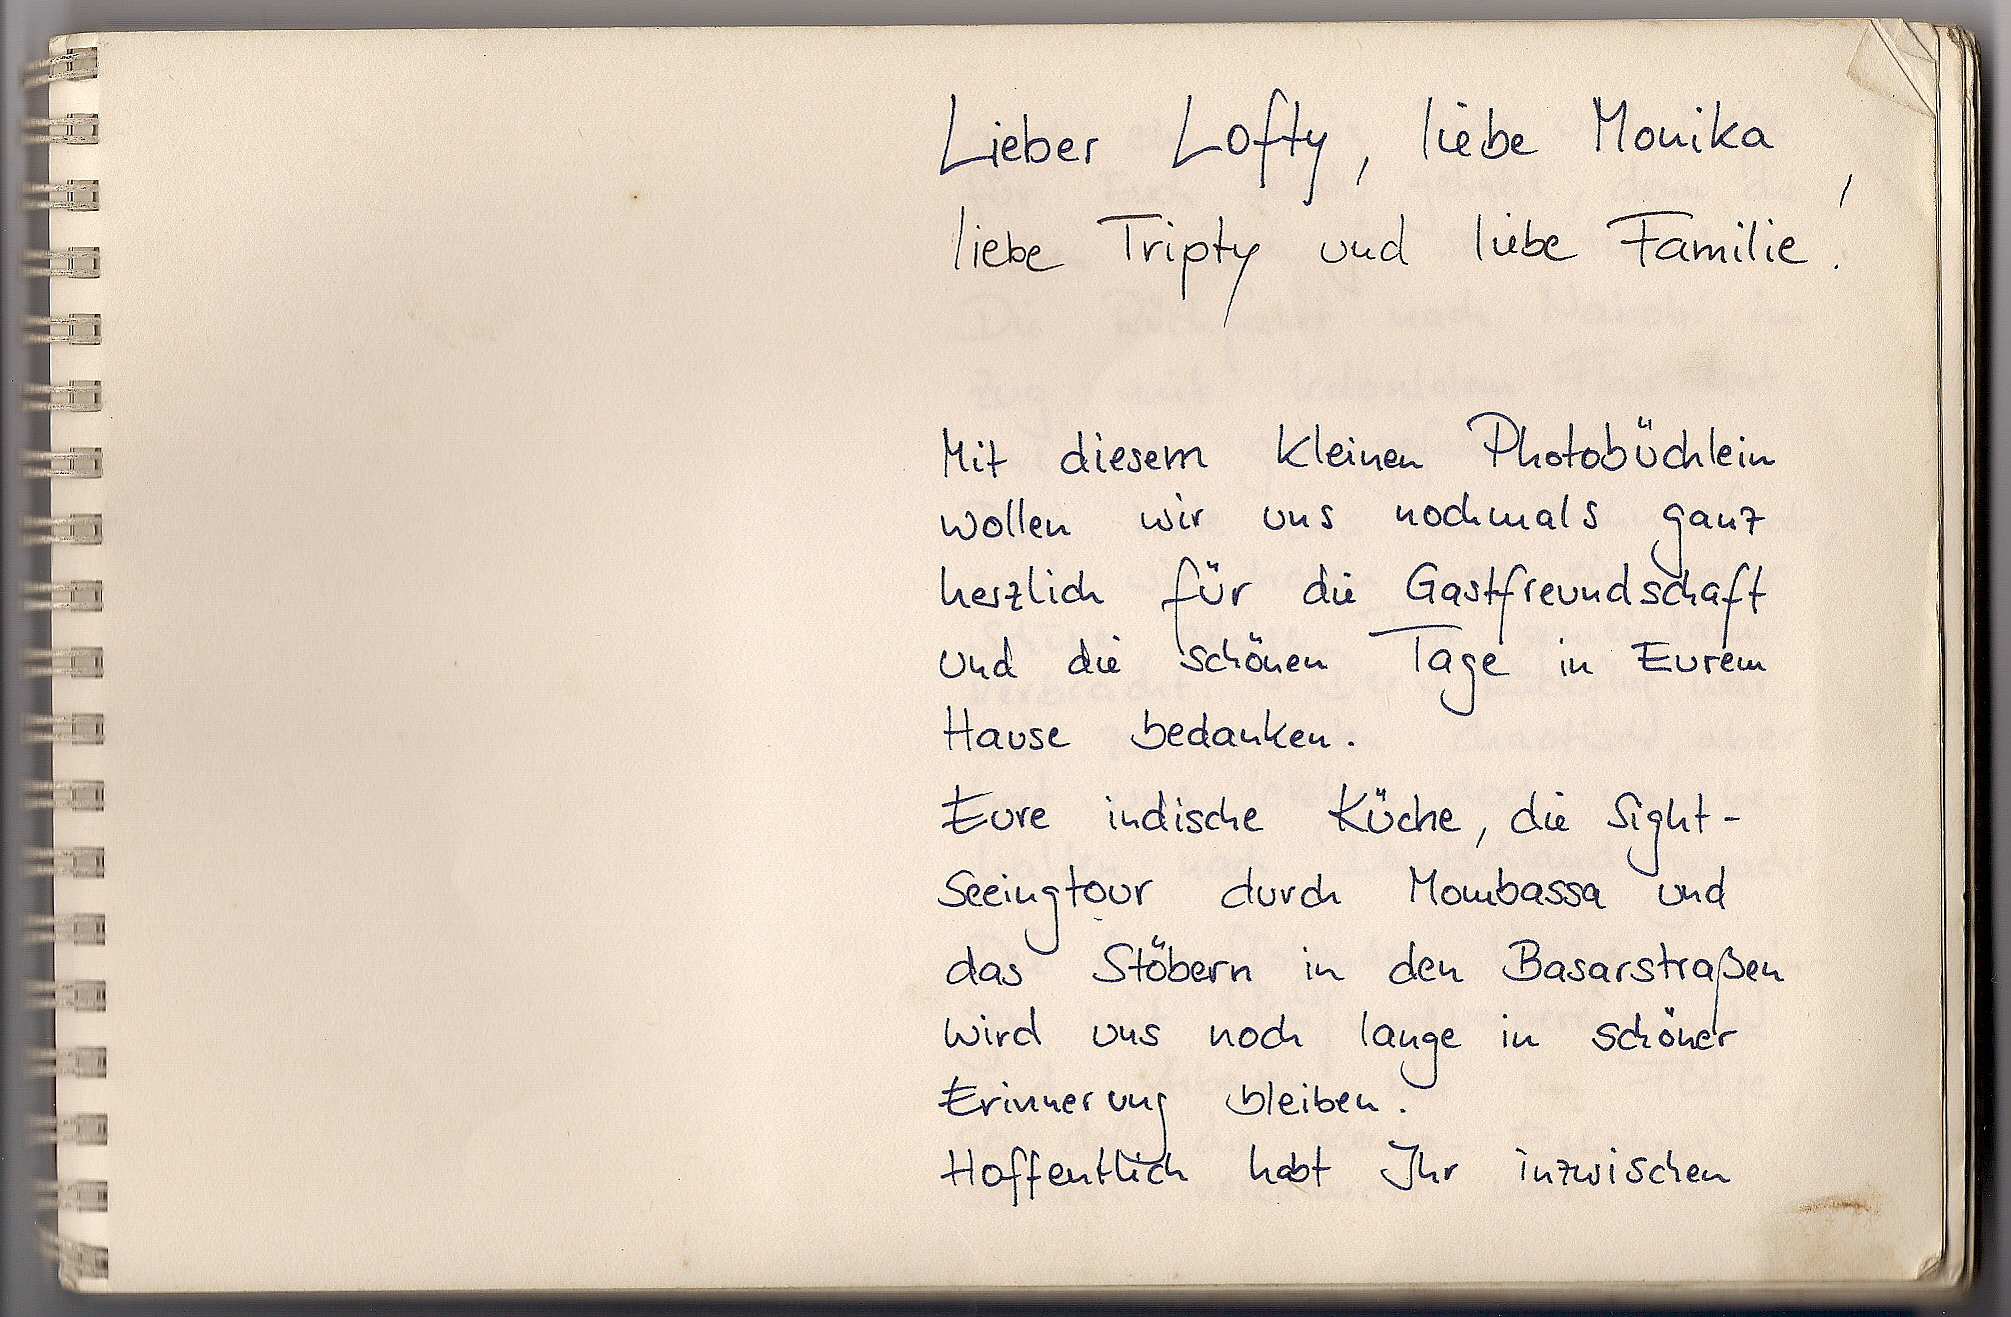 Lieber Lofty, liebe Monika
liebe Tripty und liebe Familie!
Mit diesem kleinen Photobüchlein
wollen wir uns nochmals ganz
herzlich für die Gastfreundschaft
und die schönen Tage in Eurem
Hause bedanken.
Eure indische Küche, die Sight-
Seeingtour durch Mombassa und
das Stöbern in den Basarstraßen
wird uns noch lange in schöner
Erinnerung bleiben.
Hoffentlich habt Ihr inzwischen